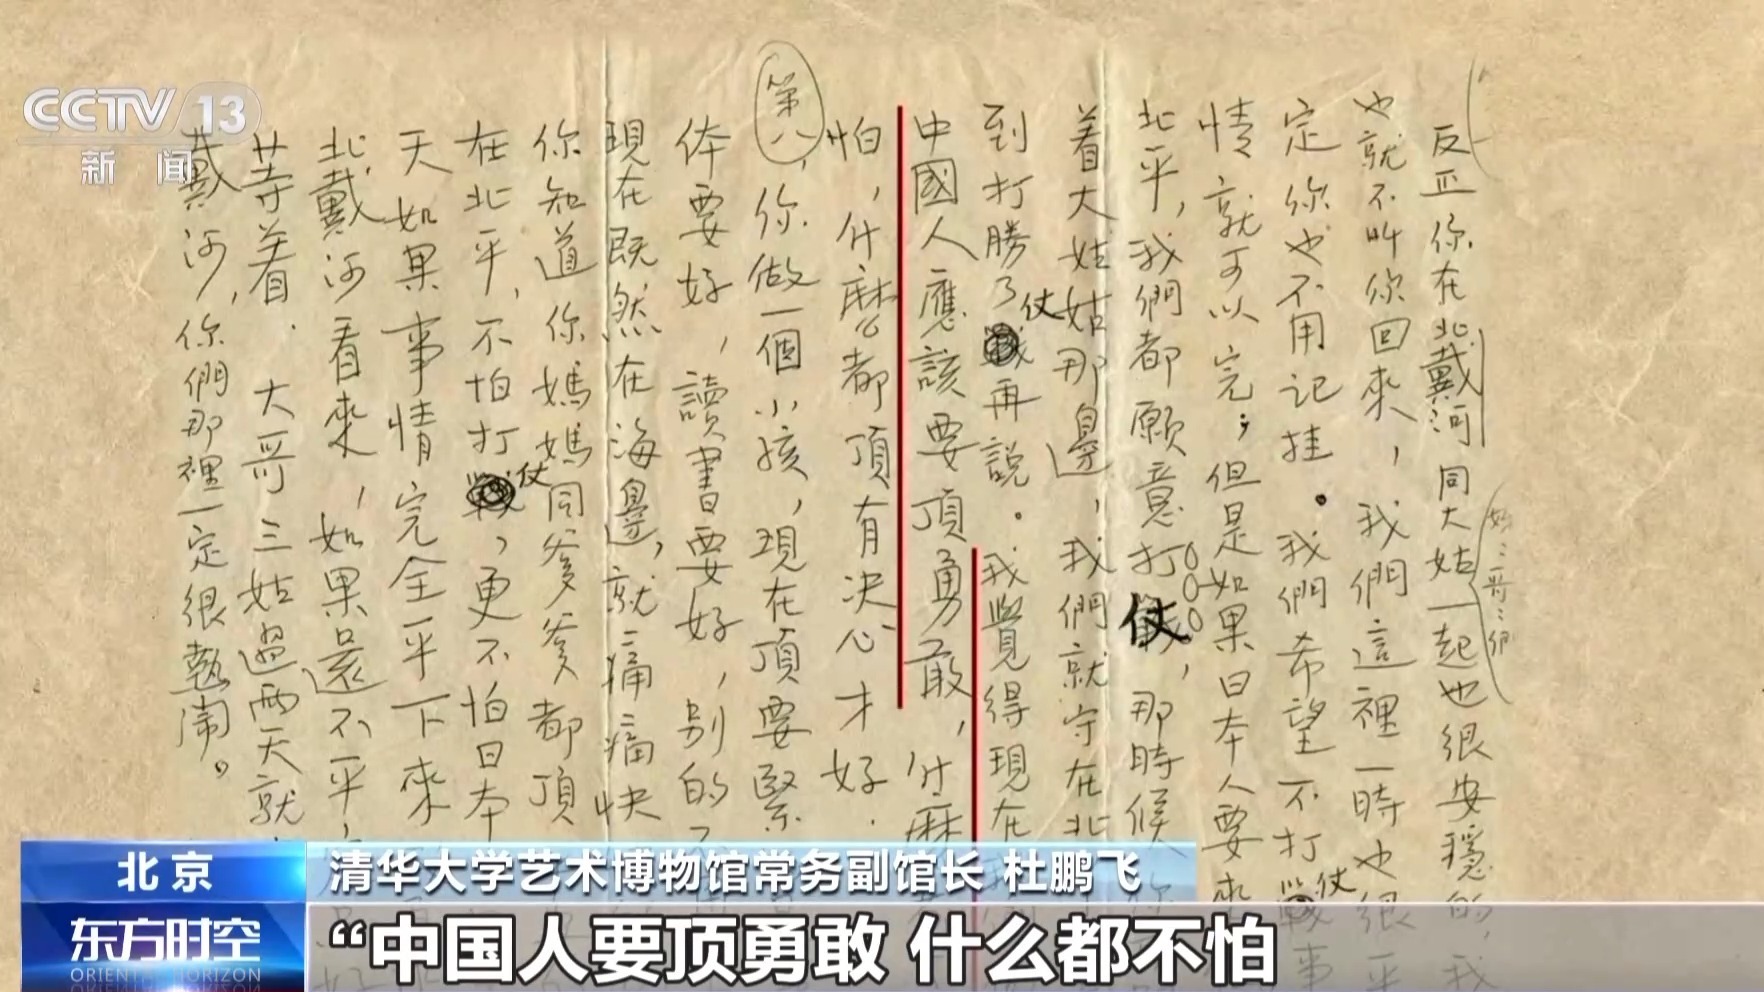 CCTV 13
新闻
反正你在北戴河同大姑一起也很安穩的,我
也就不叫你回來,我們這裡一時也很平
定你也不用记挂。我們希望不打仗事
情就可以完;但是如果日本人要來
北平,我們都願意打仗,那時候你
着大姑姑那邊,我們就守在北
到打勝了仗再説。我覺得現在
中國人應該要頂勇敢,什麽
怕,什麽都頂有决心才好.
第八,你做一個小孩,現在頂要緊
体要好,讀書要好,别的
現在既然在海邊,就痛痛快
你知道你媽媽同爹爹都頂
在北平,不怕打仗,更不怕日本
天如果事情完全平下來
北戴河看來,如果還不平
等着.大哥三姑過兩天就
戴河,你們那裡一定很熱鬧。
北京
清华大学艺术博物馆常务副馆长 杜鹏飞
东方时空
ORIENTAL HORIZON
“中国人要顶勇敢 什么都不怕